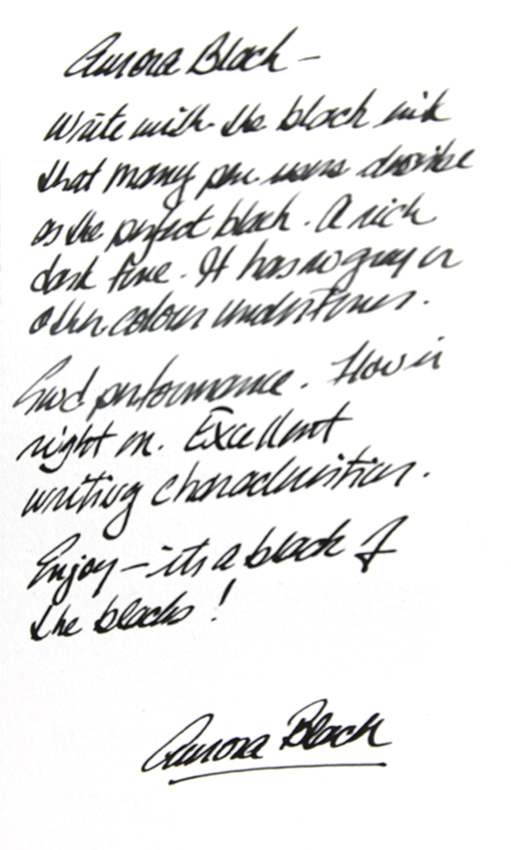 Aurora Black —
Write with the black ink
that many pen users describe
as the perfect black. A rich
dark tone. It has no gray or
other colour undertones.
Good performance. Flow is
right on. Excellent
writing characteristics.
Enjoy — its a black of
the blacks!
Aurora Black